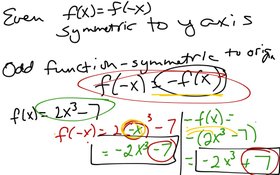 Even f(x) = f(-x)
symmetric to y axis
Odd function - symmetric to origin
f(-x) = -f(x)
f(x) = 2x³ - 7
f(-x) = 2(-x)³ - 7
= -2x³ - 7
-f(x) =
-(2x³ - 7)
= -2x³ + 7